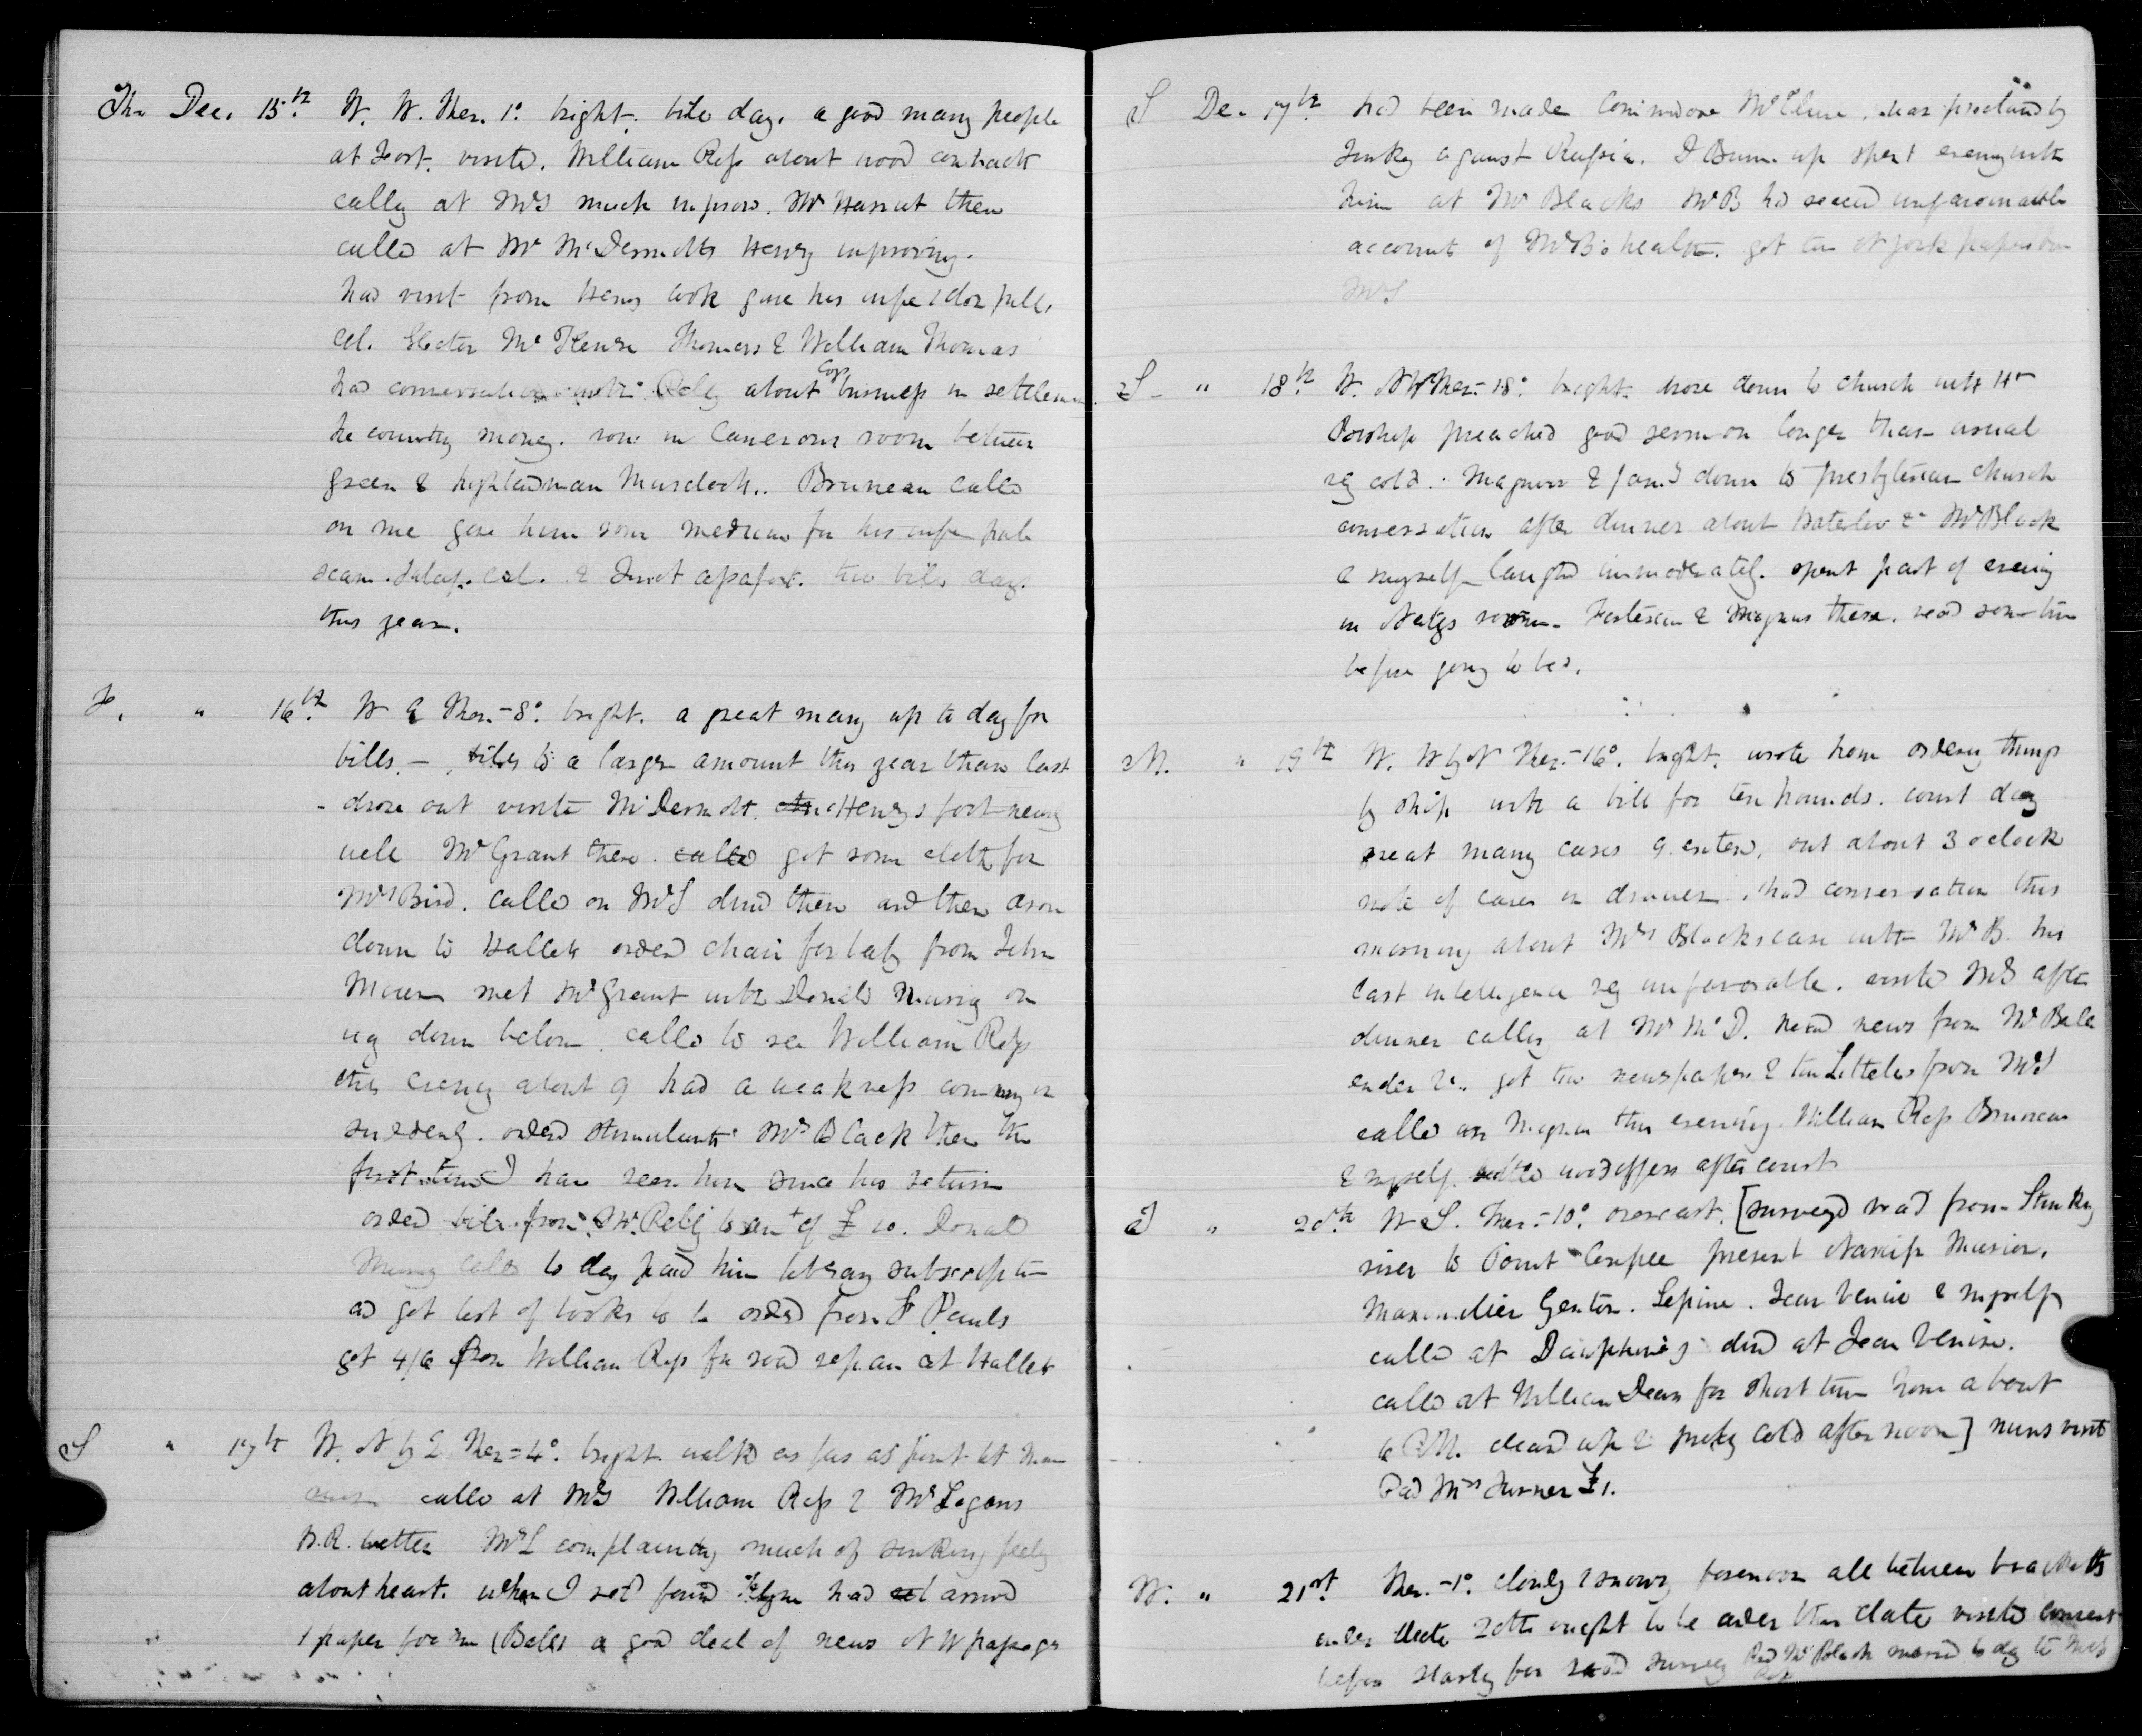 Th. Dec. 15th W. W. Ther. 1° bright. bill day. a good many people
at Fort. visited. William Ross about wood contract
calling at Mrs much improv. Mr there
called at Mr McDermotts Henry improving.
had visit from Henry Cook gave his wife 1 doz pills.
Cel. Thomas & William Thomas
had conversation with about business in settlement
the country money. row in Camerons room between
Green & highlandman Murdoch.. Bruneau called
on me gave him some medicine for his wife
scam. Jalap. Cal. & Tinct assafoet. two bills days
this year.
F. " 16th W E Ther. -8° bright. a great many up to day for
bills. - bills to a larger amount this year than last
- drove out visited McDermott. Henrys foot nearly
well Mr Grant there. called got some cloth for
Mrs Bird. called on Mrs dined there and then drove
down to Halletts ordered chair for baby from John
met Mr Grant with Donald on
way down below. called to see William Ross
this evening about 9 had a weakness coming on
suddenly. ordered stimulants Mr Black there the
first time I have seen him since his return
ordered bill from Mr to amt of £ 10. Donald
called to day paid him library subscription
and got list of books to be ordered from St Pauls
got 4/6 from William Ross for road repair at Halletts
S " 17th W. N by E. Ther. -4° bright. walked as far as
called at Mrs William Ross & Mr Logans
W.R. better Mrs L complaining much of sinking feeling
about heart. when I retd found had arrived
1 paper for me (Bales a good deal of news N W passage
S De. 17th had been made Commodore McClure. war proclaimed by
Turkey against Russia. J Bunn up spent evening with
him at Mr Blacks Mr B had received unfavourable
accounts of Mrs B's health. got two N York papers from
Mrs
S " 18th W. N W Ther. -18° bright. drove down to church with
Bishop preached good sermon longer than usual
very cold. Magnus & down to Presbyterian church
conversation after dinner about Waterloo & Mr Black
& myself laughed immoderately. spent part of evening
in room. & Magnus there. read some time
before going to bed.
M. " 19th W. W by N Ther. -16° bright. wrote home ordering things
by ship with a bill for ten pounds. court day
great many cases 9 entered, out about 3 oclock
note of cases in drawer. had conversation this
morning about Mrs Blacks case with Mr B. his
last intelligence very unfavorable. visited Mrs after
dinner calling at Mr McD. heard news from Mr
got two newspapers & two Littells from Mrs
called on Magnus this evening. William Ross Bruneau
& myself settled wood affairs after court
T " 20th W S. Ther. -10° overcast. [surveyed road from Stinking
river to Point Coupee present
Genton. Lepine. Jean Venise & myself
called at Dauphine's dined at Jean Venise.
called at William Deans for short time home about
6 P.M. cleared up & pretty cold after noon] nuns visit
Paid Mrs Turner £1.
W. " 21st Ther. -1° cloudy & snowy forenoon all between brackets
under date 20th ought to be under this date visited
before starting for road survey Mr Black moved to day to